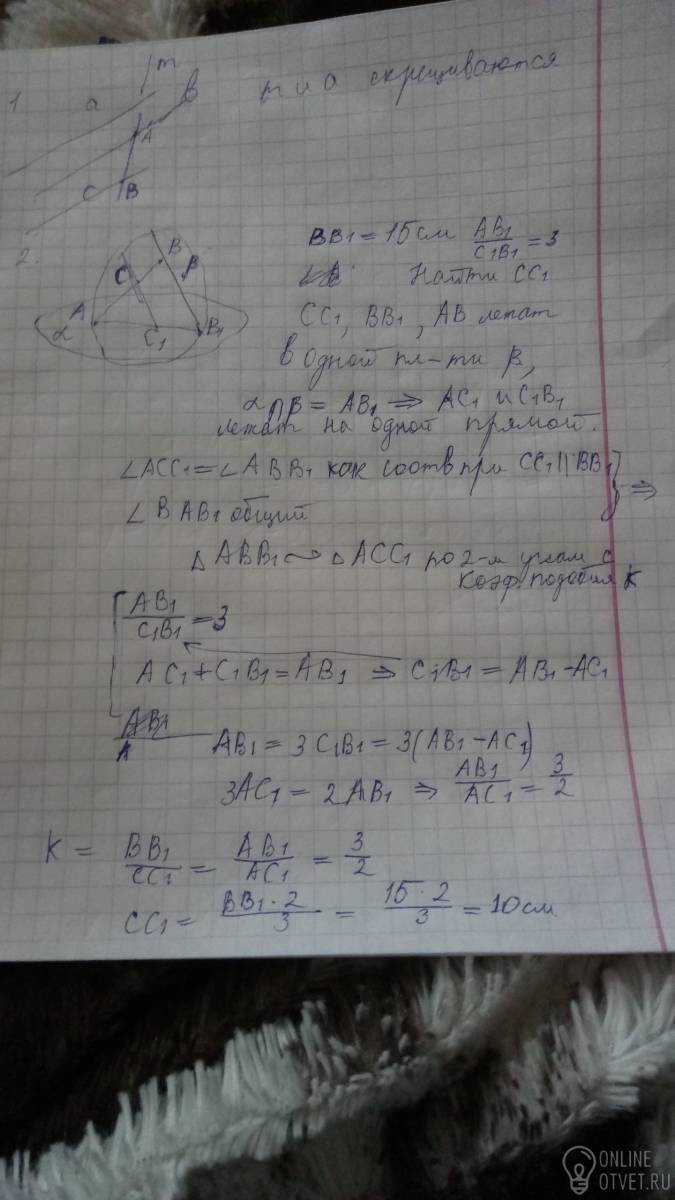 1 a m b m и a скрещиваются
A
C B
2.
BB₁ = 15 см AB₁/C₁B₁ = 3
Найти CC₁
B C β A α C₁ B₁
CC₁, BB₁, AB лежат
в одной пл-ти β,
α∩β = AB₁ ⇒ AC₁ и C₁B₁
лежат на одной прямой.
∠ACC₁ = ∠ABB₁ как соотв при CC₁ || BB₁ } ⇒
∠BAB₁ общий
△ABB₁ ~ △ACC₁ по 2-м углам с
коэф. подобия k
AB₁/C₁B₁ = 3
AC₁ + C₁B₁ = AB₁ ⇒ C₁B₁ = AB₁ - AC₁
AB₁ = 3 C₁B₁ = 3(AB₁ - AC₁)
3AC₁ = 2AB₁ ⇒ AB₁/AC₁ = 3/2
K = BB₁/CC₁ = AB₁/AC₁ = 3/2
CC₁ = BB₁·2/3 = 15·2/3 = 10 см
ONLINE
OTVET.RU